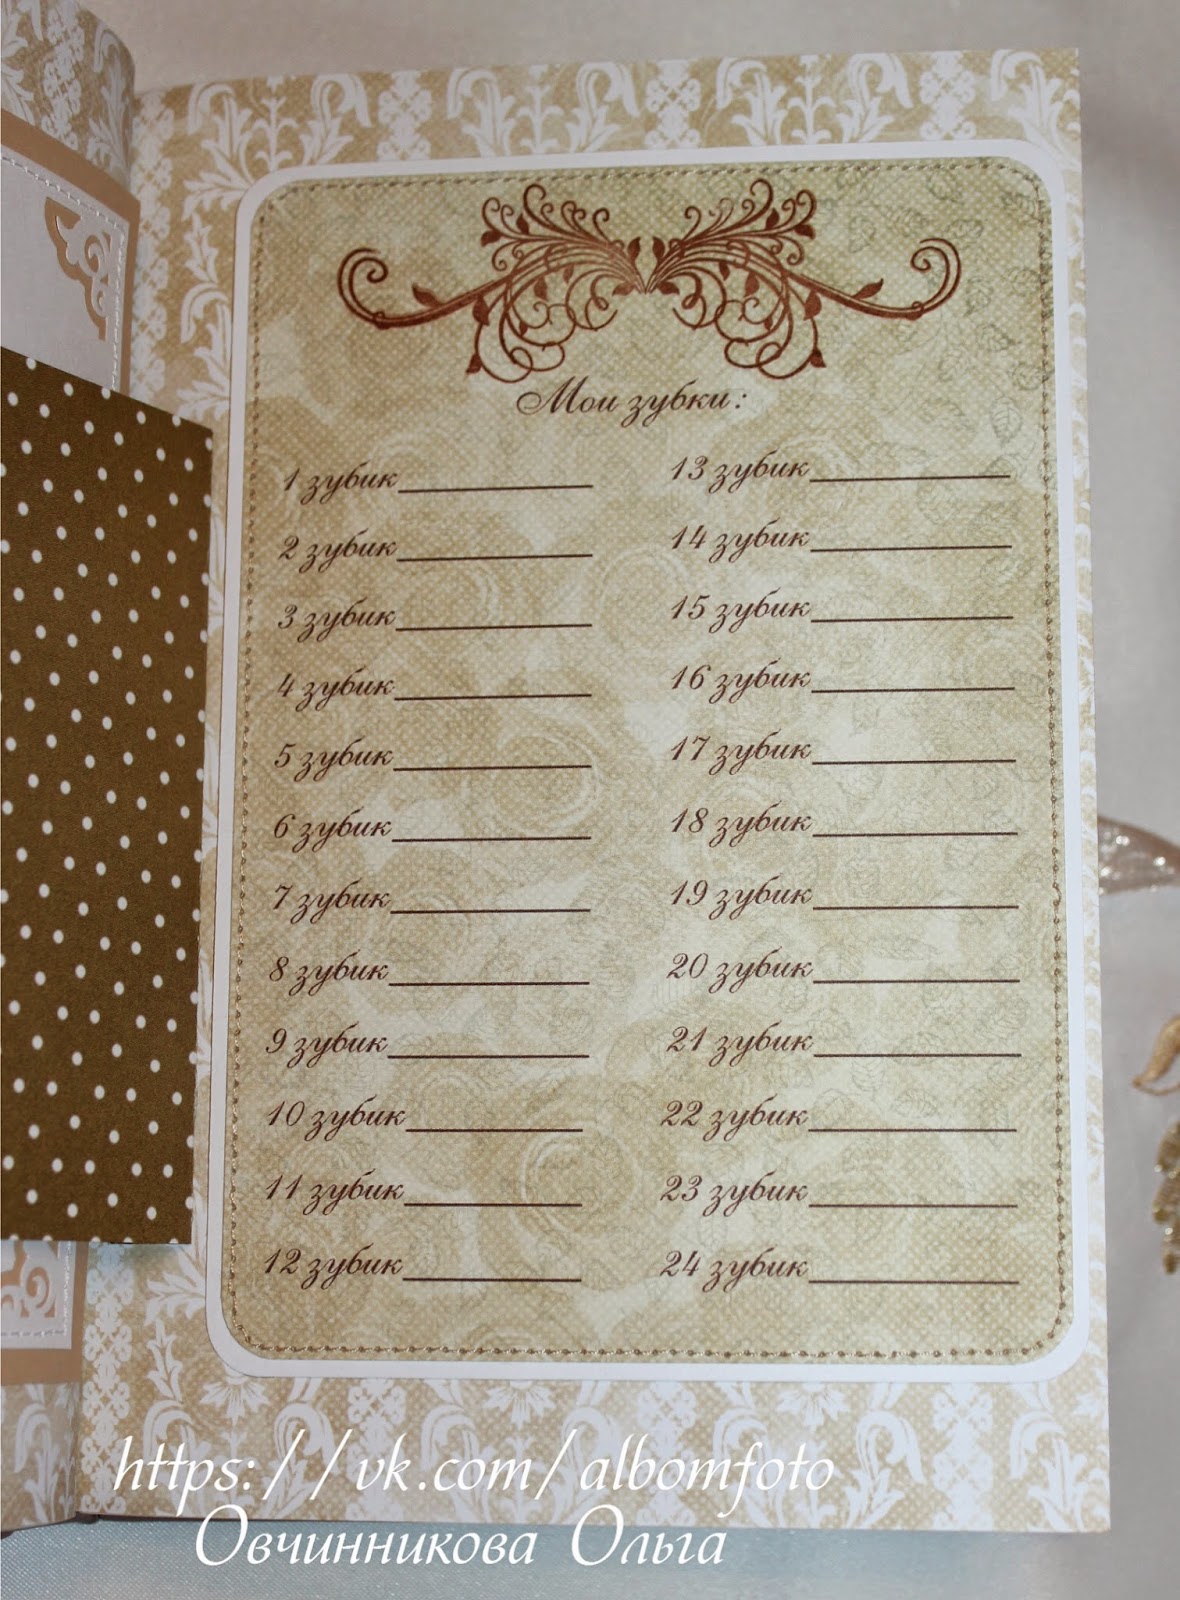 Мои зубки:
1 зубик
2 зубик
3 зубик
4 зубик
5 зубик
6 зубик
7 зубик
8 зубик
9 зубик
10 зубик
11 зубик
12 зубик
13 зубик
14 зубик
15 зубик
16 зубик
17 зубик
18 зубик
19 зубик
20 зубик
21 зубик
22 зубик
23 зубик
24 зубик
https://vk.com/albomfoto
Овчинникова Ольга